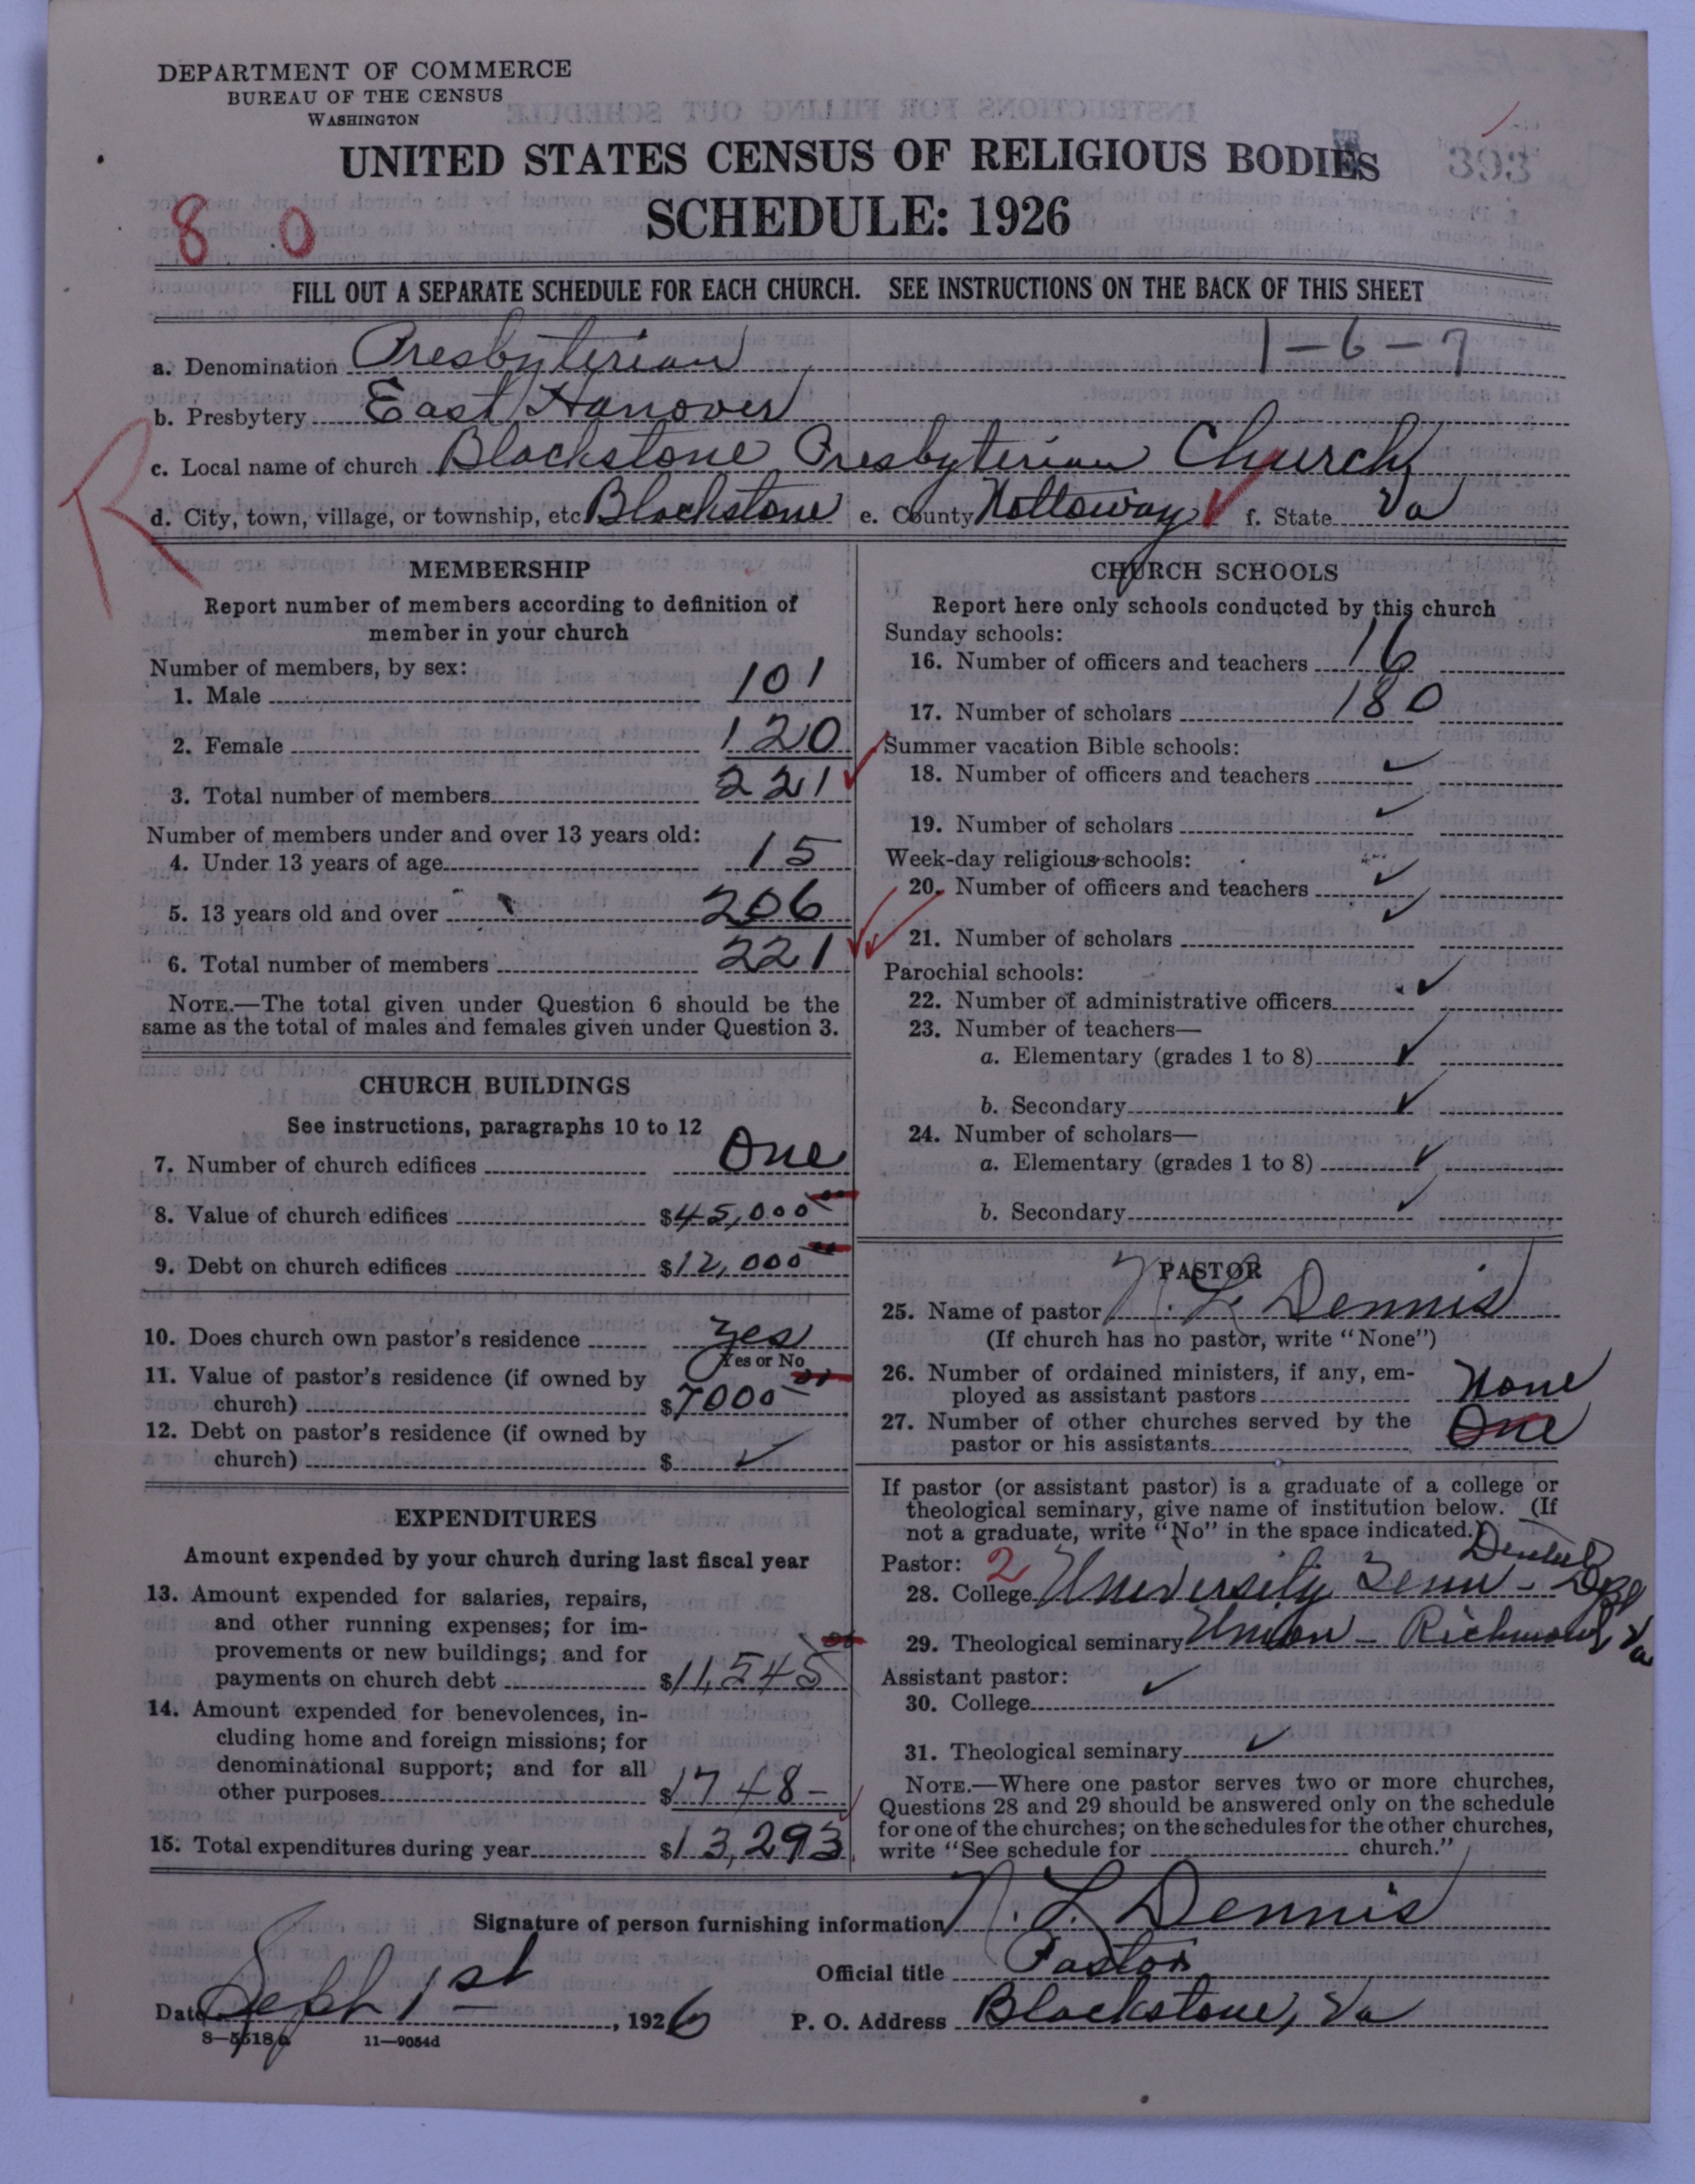 DEPARTMENT OF COMMERCE
BUREAU OF THE CENSUS
WASHINGTON
UNITED STATES CENSUS OF RELIGIOUS BODIES
SCHEDULE: 1926
8 0
FILL OUT A SEPARATE SCHEDULE FOR EACH CHURCH. SEE INSTRUCTIONS ON THE BACK OF THIS SHEET
a. Denomination Presbyterian 1-6-7
b. Presbytery East Hanover
c. Local name of church Blackstone Presbyterian Church
d. City, town, village, or township, etc Blackstone e. County Nottoway f. State Va
R
MEMBERSHIP
Report number of members according to definition of
member in your church
Number of members, by sex:
1. Male 101
2. Female 120
3. Total number of members 221
Number of members under and over 13 years old:
4. Under 13 years of age 15
5. 13 years old and over 206
6. Total number of members 221
NOTE.—The total given under Question 6 should be the
same as the total of males and females given under Question 3.
CHURCH BUILDINGS
See instructions, paragraphs 10 to 12
7. Number of church edifices One
8. Value of church edifices $45,000 00
9. Debt on church edifices $12,000 00
10. Does church own pastor's residence yes
Yes or No
11. Value of pastor's residence (if owned by
church) $7000 00
12. Debt on pastor's residence (if owned by
church) $ ✓
EXPENDITURES
Amount expended by your church during last fiscal year
13. Amount expended for salaries, repairs,
and other running expenses; for im-
provements or new buildings; and for
payments on church debt $11,545 00
14. Amount expended for benevolences, in-
cluding home and foreign missions; for
denominational support; and for all
other purposes $1748-
15. Total expenditures during year $13,293
CHURCH SCHOOLS
Report here only schools conducted by this church
Sunday schools:
16. Number of officers and teachers 16
17. Number of scholars 180
Summer vacation Bible schools:
18. Number of officers and teachers ✓
19. Number of scholars ✓
Week-day religious schools:
20. Number of officers and teachers ✓
21. Number of scholars ✓
Parochial schools:
22. Number of administrative officers ✓
23. Number of teachers—
a. Elementary (grades 1 to 8) ✓
b. Secondary ✓
24. Number of scholars—
a. Elementary (grades 1 to 8) ✓
b. Secondary ✓
PASTOR
25. Name of pastor N. L. Dennis
(If church has no pastor, write "None")
26. Number of ordained ministers, if any, em-
ployed as assistant pastors None
27. Number of other churches served by the
pastor or his assistants One
If pastor (or assistant pastor) is a graduate of a college or
theological seminary, give name of institution below. (If
not a graduate, write "No" in the space indicated.)
Pastor: 2 Dental
28. College University Tenn -
29. Theological seminary Union - Richmond, Va
Assistant pastor:
30. College ✓
31. Theological seminary ✓
NOTE.—Where one pastor serves two or more churches,
Questions 28 and 29 should be answered only on the schedule
for one of the churches; on the schedules for the other churches,
write "See schedule for church."
Signature of person furnishing information N. L. Dennis
Official title Pastor
Date Sept 1st, 1926 P. O. Address Blackstone, Va
8—5518a 11—9054d